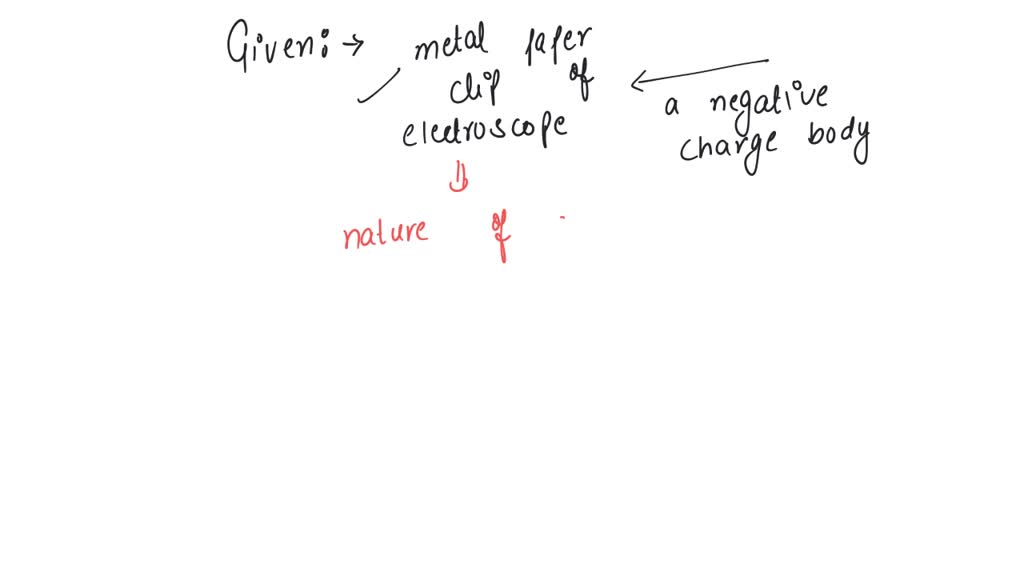 Given: → metal paper
clip of
electroscope
a negative
charge body
nature of